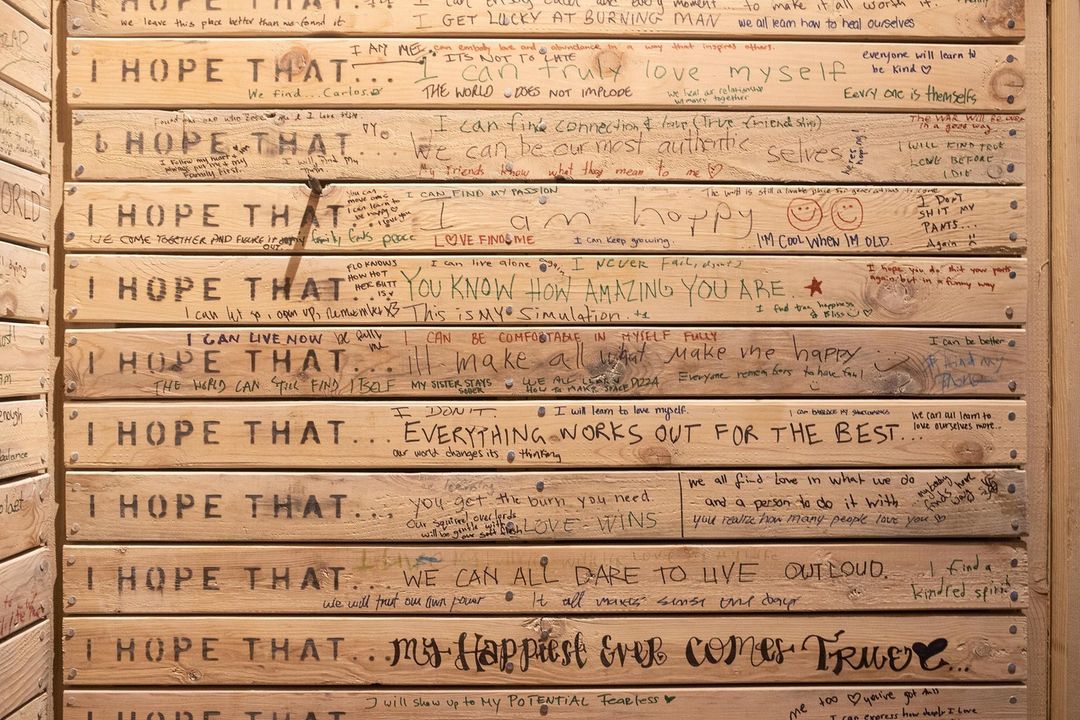 I can
every moment to make it all worth it.
we leave this place better than we found it
I GET LUCKY AT BURNING MAN
we all learn how to heal ourselves
I HOPE THAT...
I AM ME!
can embody love and abundance in a way that inspires others.
ITS NOT TO LATE
I can truly love myself
everyone will learn to be kind ♡
We find... Carlos
THE WORLD DOES NOT IMPLODE
we heal our relationship w/ money together
Every one is themselves
I HOPE THAT...
I can find connection & love (True friendship)
The WAR Will be over in a good way
We can be our most authentic selves
I WILL FIND TRUE LOVE BEFORE I DIE
I follow my heart
Family First.
I will find my
My friends know what they mean to me ♡
I HOPE THAT...
You can move on & I can learn to be happy ♡ I love you
I CAN FIND MY PASSION
The world is still a livable place for generations to come
I am happy
I DON'T SHIT MY PANTS... Again
WE COME TOGETHER AND FIGURE IT OUT
my family finds peace
L♡VE FINDS ME
I can keep growing.
I'M COOL WHEN I'M OLD.
I HOPE THAT...
FLO KNOWS HOW HOT HER BUTT IS
I can live alone
I NEVER FAIL,
I hope you do shit your pants again but in a funny way
YOU KNOW HOW AMAZING YOU ARE.
I can let go, open up, Remember
This is MY Simulation. +1
I find true happiness & Bliss
I HOPE THAT...
I CAN LIVE NOW
be fully me
I CAN BE COMFORTABLE IN MYSELF FULLY
I can be better
I'll make all what make me happy
I find my
THE WORLD CAN FIND ITSELF
MY SISTER STAYS SOBER
WE ALL LEARN HOW TO MAKE SPACE PIZZA
Everyone remembers to have fun!
I HOPE THAT...
I DON'T.
I will learn to love myself.
I can embrace my
we can all learn to love ourselves more..
EVERYTHING WORKS OUT FOR THE BEST...
Our world changes its thinking
I HOPE THAT...
you get the burn you need
we all find love in what we do
and a person to do it with
Our squirrel overlords will be gentle with our soft flesh
LOVE WINS
you realize how many people love you ♡
my baby finds her way
I HOPE THAT...
WE CAN ALL DARE TO LIVE OUTLOUD.
I find a kindred spirit
we will trust our own power
It all makes sense one day
I HOPE THAT...
My Happiest Ever Comes True ♥...
I HOPE THAT
I will show up to MY POTENTIAL Fearless ♥
me too ♡ you've got this
I can express how deeply I love